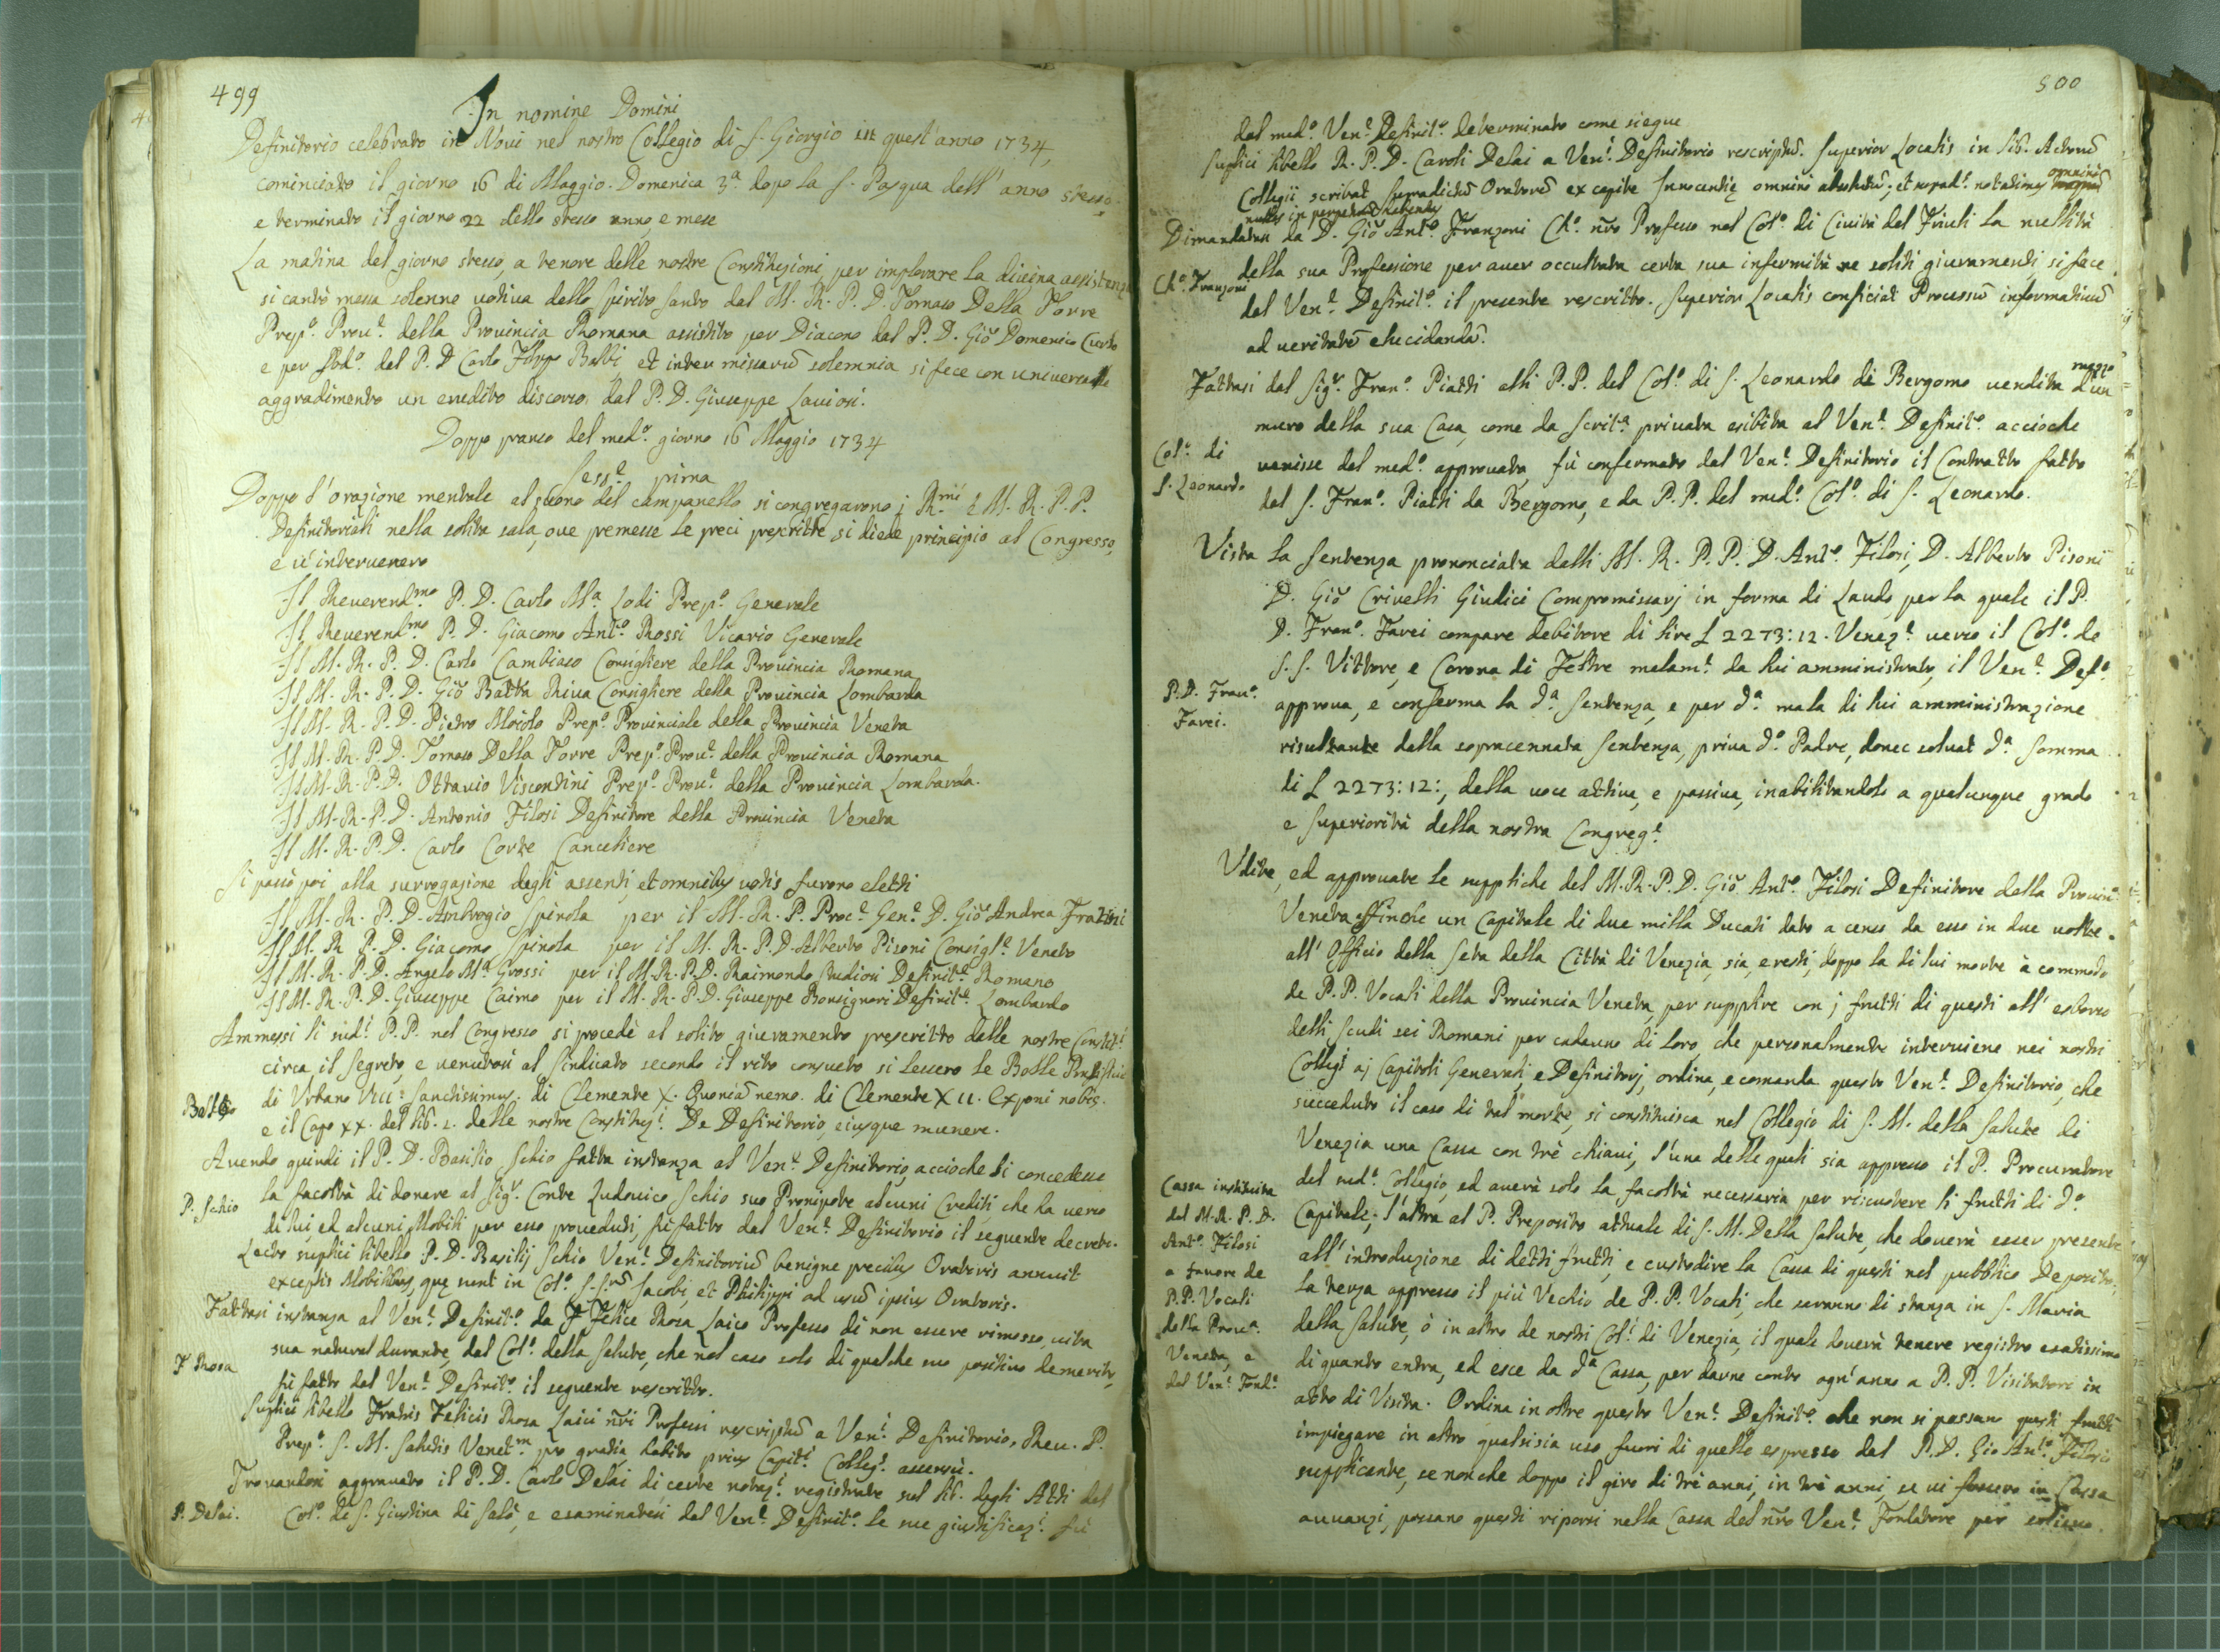 499
In nomine Domini
Definitorio celebrato in Novi nel nostro Collegio di S. Giorgio quest'anno 1734,
cominciato il giorno 16 di Maggio. Domenica 3ª dopo la S. Pasqua dell'anno stesso
e terminato il giorno 22 dello stesso anno, e mese
La matina del giorno stesso, a tenore delle nostre Constituzioni, per implorare la divina assistenza
si cantò messa solenne votiva dello Spirito Santo dal M. R. P. D. Tomaso Della Torre
Prepº. Provˡᵉ. della Provincia Romana assistito per Diacono dal P. D. Giõ Domenico
e per Sbdº. del P. D Carlo Filippo Balbi, et inter missarũ solemnia si fece con universale
aggradimento un erudito discorso, dal P. D. Giuseppe Laviosi.
Doppo pranso del medº. giorno 16 Maggio 1734
Sessᵉ. prima
Doppo l'orazione mentale al suono del campanello si congregarono j Rᵐⁱ e M. R. P. P.
Definitoriali nella solita sala, ove premesse le preci prescritte, si diede principio al Congresso,
e v'intervenero
Il Reverendᵐᵒ. P. D. Carlo Mª. Lodi Prepº. Generale
Il Reverendᵐᵒ. P. D. Giacomo Antº. Rossi Vicario Generale
Il M. R. P. D. Carlo Cambiaso Consigliere della Provincia Romana
Il M. R. P. D. Giõ Batta Riva Consigliere della Provincia Lombarda
Il M. R. P. D. Pietro Moiolo Prepº. Provinciale della Provincia Veneta
Il M. R. P. D. Tomaso Della Torre Prepº. Provˡᵉ. della Provincia Romana
Il M. R. P. D. Ottavio Viscontini Prepº. Provˡᵉ. della Provincia Lombarda.
Il M. R. P. D. Antonio Filosi Definitore della Provincia Veneta
Il M. R. P. D. Carlo Corte Canceliere
Si passò poi alla surrogazione degli assenti, et omnibus votis furono eletti
Il M. R. P. D. Ambrogio Spinola per il M. R. P. Procᵉ. Genᵉ. D. Giõ Andrea Fratini
Il M. R. P. D. Giacomo Spinola per il M. R. P. D. Alberto Pisoni Consiglᵉ. Veneto
Il M. R. P. D. Angelo Mª. Grossi per il M. R. P. D. Raimondo Studiosi Definitᵉ. Romano
Il M. R. P. D. Giuseppe Caimo per il M. R. P. D. Giuseppe Bonsignori Definitᵉ. Lombardo
Ammessi li sudⁱ. P. P. nel Congresso si procedè al solito giuramento prescritto dalle nostre Constitⁱ.
circa il segreto, e venutosi al Sindicato secondo il rito consueto si lessero le Bolle Pontificie
Bolle
di Urbano VIII: Sanctissimus. di Clemente X. Quoniã nemo. di Clemente XII. Exponi nobis.
e il Capo XX. del lib. 2. delle nostre Constituzⁱ. De Definitorio, eiusque munere.
Avendo quindi il P. D. Basilio Schio fatta instanza al Venᵉ. Definitorio, accioche li concedesse
P. Schio
la facoltà di donare al Sigʳ. Conte Ludovico Schio suo Pronipote alcuni Crediti, che ha verso
di lui, ed alcuni Mobili per esso proveduti, fù fatto dal Venᵉ. Definitorio il seguente decreto.
Lecto suplici libello P. D. Basilij Schio Venᵉ. Definitoriũ benigne precibus Oratoris annuit
exceptis Mobilibus, quę sunt in Colº. S. Srũ Jacobi, et Philippi ad usũ ipsius Oratoris.
Fattasi instanza al Venᵉ. Definitº. da F Felice Rosa Laico Professo di non essere rimosso, vita
F Rosa
sua natural durante, dal Colº. della Salute, che nel caso solo di qualche suo positivo demerito,
fù fatto dal Venᵉ. Definitº. il seguente rescritto.
Suplici libello Fratris Felicis Rosa Laici ñri Professi rescriptũ a Venⁱ. Definitorio. Rev. P.
Prepº. S. M. Salutis Venetᵐ. pro gratia, habito prius Capitⁱ. Collegⁱ. assensu.
Trovandosi aggravato il P. D. Carlo Delai di certe notazⁱ. registrate sul lib. degli Atti del
P. Delai.
Colº. di S. Giustina di Salò, e esaminatesi dal Venᵉ. Definitº. le sue giustificazⁱ. fù
500
dal medº. Venᵉ. Definitº. determinato come siegue
Suplici libello R. P. D. Caroli Delai a Venⁱ. Definitorio rescriptũ. Superior Localis in lib. Actorũ
omnino
Collegii scribat supradictũ Oratorẽ ex capite Innocentię omnino absolutũ; et
nullas in perpetuũ habendas
Dimandatasi da D. Giõ Antº. Franzoni Chº. ñro Professo nel Colº. di Cividà del Friuli la nullità
Chº. Franzoni
della sua Professione per aver occultata certa sua infermità ne soliti giuramenti, si fece
dal Venᵉ. Definitº. il presente rescritto. Superior Localis conficiat Processũ informativũ
ad veritatẽ elucidandã.
Fattasi dal Sigʳ. Franº. Piatti alli P. P. del Colº. di S. Leonardo di Bergomo vendita d'un
mezzo
muro della sua Casa, come da Scritª. privata esibita al Venᵉ. Definitº. accioche
Colº. di
S. Leonardo
venisse dal medº. approvata, fù confermato dal Venᵉ. Definitorio il Contratto fatto
dal S. Franº. Piatti da Bergomo, e da P. P. del medº. Colº. di S. Leonardo.
Vista la Sentenza prononciata dalli M. R. P. P. D. Antº. Filosi, D. Alberto Pisoni
D. Giõ Crivelli Giudici Compromissarj in forma di Laudo, per la quale il P.
D. Franº. Tavei compare debitore di lire L 2273: 12. Venezᵉ. verso il Colº. de
S. S. Vittore, e Corona di Feltre malamᵗᵉ. da lui amministrato, il Venᵉ. Defº.
P. D. Franº.
Tavei.
approva, e conferma la dª. Sentenza, e per dª. mala di lui amministrazione
risultante dalla sopracennata Sentenza, priva dº. Padre, donec solvat dª. Somma
di L 2273: 12:, della voce attiva, e passiva, inabilitandolo a qualunque grado
e Superiorità della nostra Congregᵉ.
Udite, ed approvate le suppliche del M. R. P. D. Giõ Antº. Filosi Definitore della Provinª.
Veneta affinche un Capitale di due milla Ducati dato a censo da esso in due volte
all'Officio della Seta della Città di Venezia, sia, e resti, doppo la di lui morte à commodo
de P. P. Vocali della Provincia Veneta, per supplire con j frutti di questi all'esborso
delli scudi sei Romani per cadauno di loro, che personalmente interviene nei nostri
Collegj aj Capitoli Generali, e Definitorj, ordina, e comanda questo Venᵉ. Definitorio, che
succeduto il caso di tal morte, si constituisca nel Collegio di S. M. della Salute di
Venezia una Cassa con trè chiavi, l'una delle quali sia appresso il P. Procuratore
Cassa instituita
dal M. R. P. D.
Antº. Filosi
a favore de
P. P. Vocali
della Provª.
Veneta, e
del Venᵉ. Fondᵉ.
del medº. Collegio, ed averà solo la facoltà necessaria per riscuotere li frutti di dº.
Capitale; l'altra al P. Preposito attuale di S. M. Della Salute, che doverà esser presente
all'introduzione di detti frutti, e custodire la Cassa di questi nel pubblico Deposito;
la terza appresso il più Vechio de P. P. Vocali, che saranno di stanza in S. Maria
della Salute, ò in altro de nostri Colⁱ. di Venezia, il quale doverà tenere registro esatissimo
di quanto entra, ed esce da dª. Cassa, per darne conto ogn'anno a P. P. Visitatori in
atto di Visita. Ordina in oltre questo Venᵉ. Definitº. che non si possano questi frutti
impiegare in altro qualsisia uso, fuori di quello espresso dal P. D. Gio Antº. Filosi
supplicante, se non che doppo il giro di trè anni, in trè anni, se vi fossero in Cassa
avvanzi, possano questi riporsi nella Cassa del ñro Venᵉ. Fondatore per